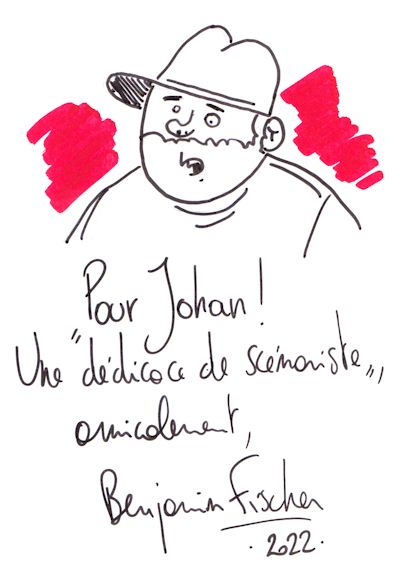 Pour Johan !
Une "dédicace de scénariste",
amicalement,
Benjamin Fischer
. 2022 .